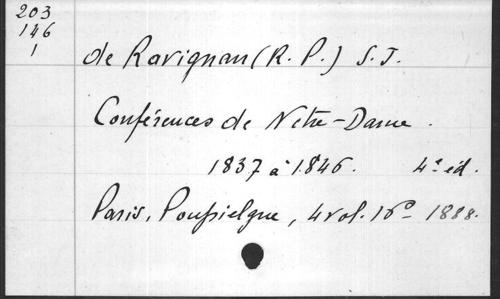 203
146
1
de Ravignan (R. P.) S. J.
Conférences de Notre-Dame.
1837 à 1846. 4e éd.
Paris, Poussielgue, 4 vol. 16° 1888.